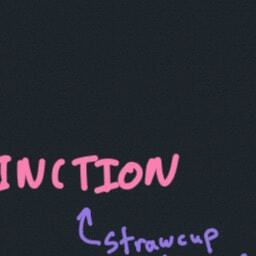 INCTION
strawcup